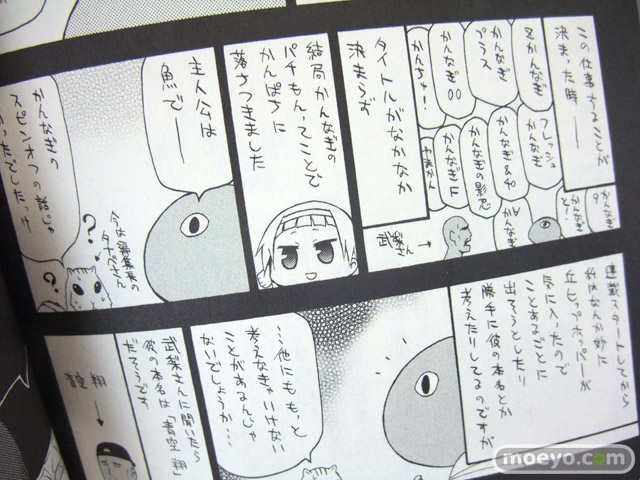 この仕事することが
決まった時――
又かんなぎ
かんなぎ
プラス
かんなぎ00
かんちゃ!
フレッシュ
かんなぎ
かんなぎ&40
かんなぎの影忍
かんなぎF
かんなぎ
と!
かんなぎ
タイトルがなかなか
決まらず
武梨さん→
結局かんなぎの
パチもん、ってことで
かんぱちに
落ちつきました
主人公は
魚で――
かんなぎの
スピンオフの話じゃ
なかったでしたっけ
?
?
今は編集末の
タナベさん
連載スタートしてから
私はなんか妙に
丘ヒップホッパーが
気に入ったので
ことあるごとに
出そうとしたり
勝手に彼の本名とか
考えたりしてるのですが
…他にももっと
考えなきゃいけない
ことがあるんじゃ
ないでしょうか…
武梨さんに聞いたら
彼の本名は「青空翔」
だそうです
翔
moeyo.com